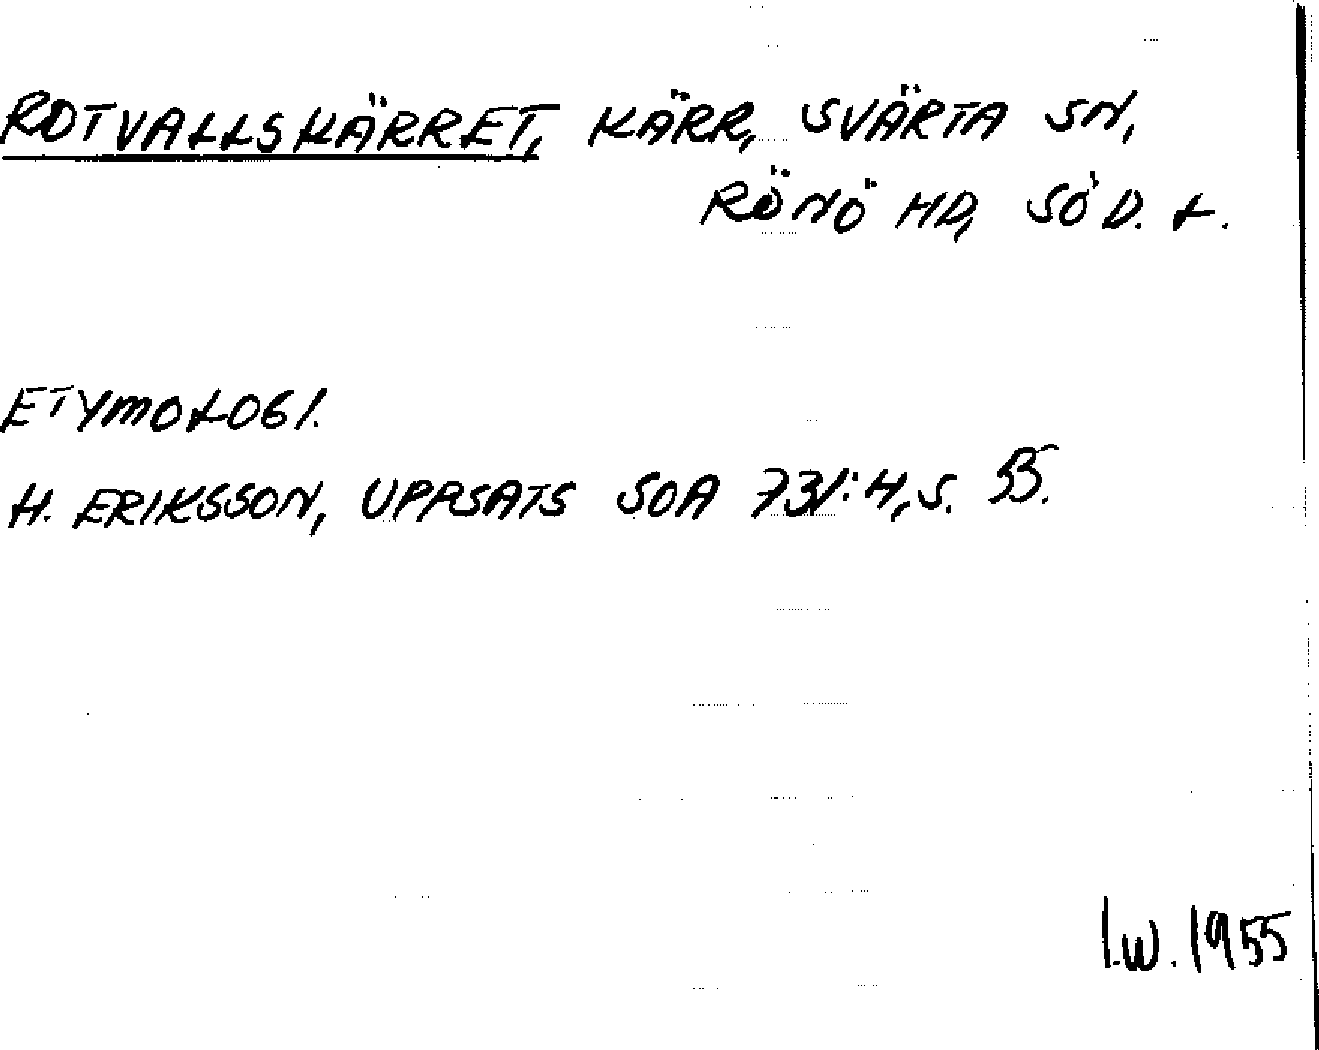 ROTVALLSKÄRRET, KÄRR, SVÄRTA SN,
RÖNÖ HD, SÖD. L.
ETYMOLOGI.
H. ERIKSSON, UPPSATS SOA 731:4, S. 55.
I.W. 1955